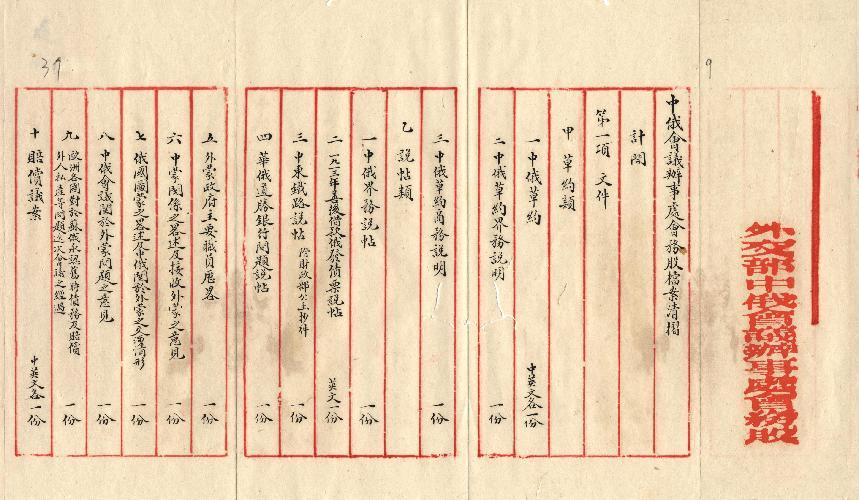 外交部中俄會議辦事處會務股
9
中俄會議辦事處會務股檔案清摺
計開
第一項 文件
甲 草約類
一 中俄草約 中英文各一份
二 中俄草約界務說明 一份
三 中俄草約商務說明 一份
乙 說帖類
一 中俄界務說帖 一份
二 一九一三年善後借款俄發債票說帖 英文一份
三 中東鐵路說帖 一份
四 華俄道勝銀行問題說帖 一份
五 外蒙政府主要職員履畧 一份
六 中蒙關係之畧述及接收外蒙之意見 一份
七 俄國圖蒙之畧述及中俄關於外蒙之交涉情形 一份
八 中俄會議關於外蒙問題之意見 一份
九 歐洲各國對於蘇俄承認舊時債務及賠償
外人私產等問題迭次會議之經過 一份
十 賠償議案 中英文各一份
39